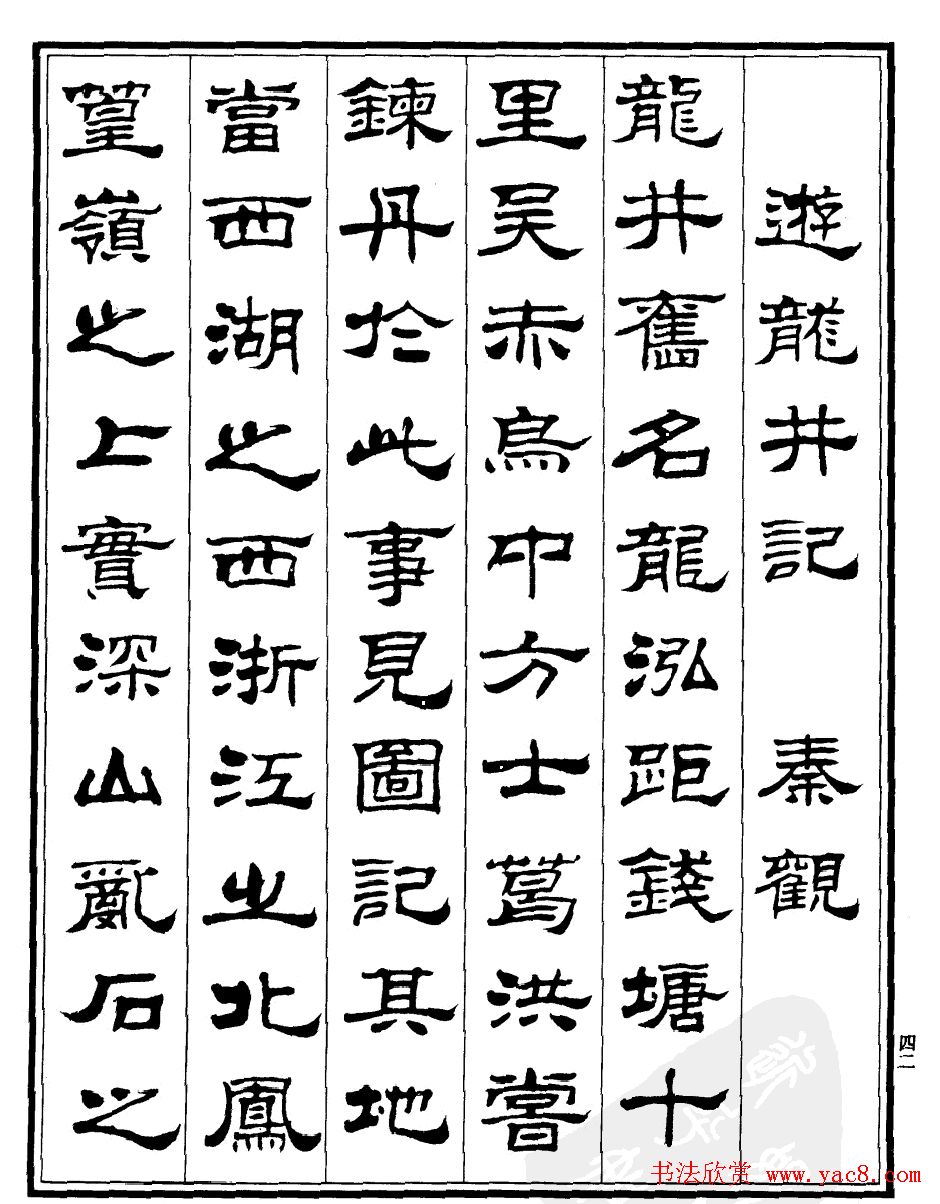 遊龍井記 秦觀
龍井舊名龍泓距錢塘十
里吳赤烏中方士葛洪嘗
鍊丹於此事見圖記其地
當西湖之西浙江之北鳳
篁嶺之上實深山亂石之
四二
书法欣赏 www.yac8.com